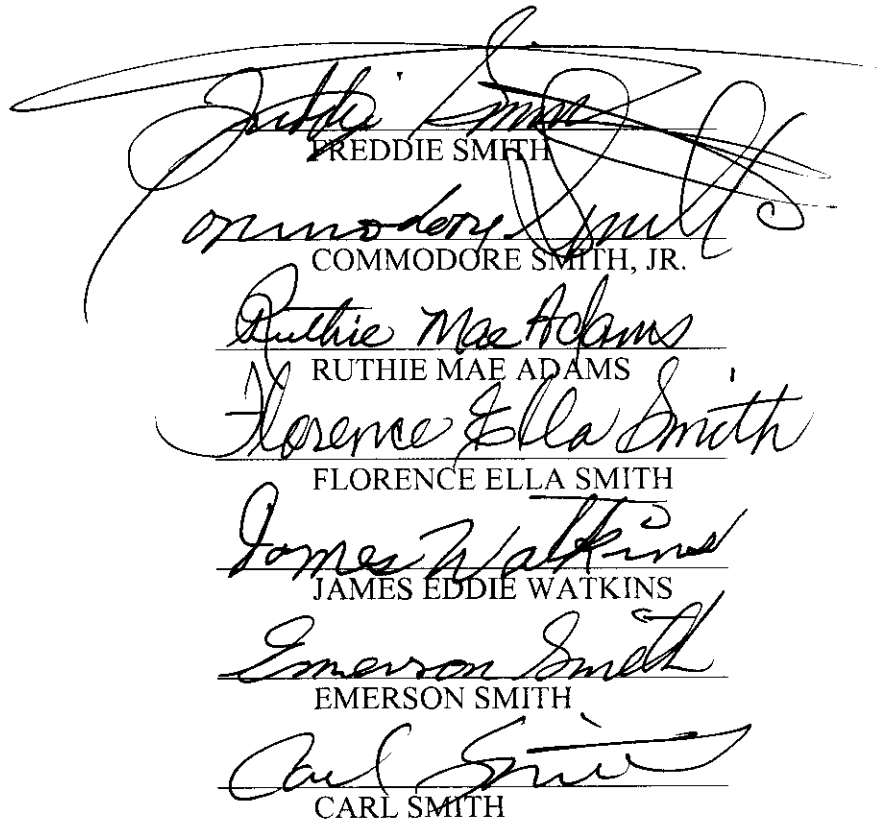 Freddie Smith
FREDDIE SMITH
Commodore Smith
COMMODORE SMITH, JR.
Ruthie Mae Adams
RUTHIE MAE ADAMS
Florence Ella Smith
FLORENCE ELLA SMITH
James Watkins
JAMES EDDIE WATKINS
Emerson Smith
EMERSON SMITH
Carl Smith
CARL SMITH